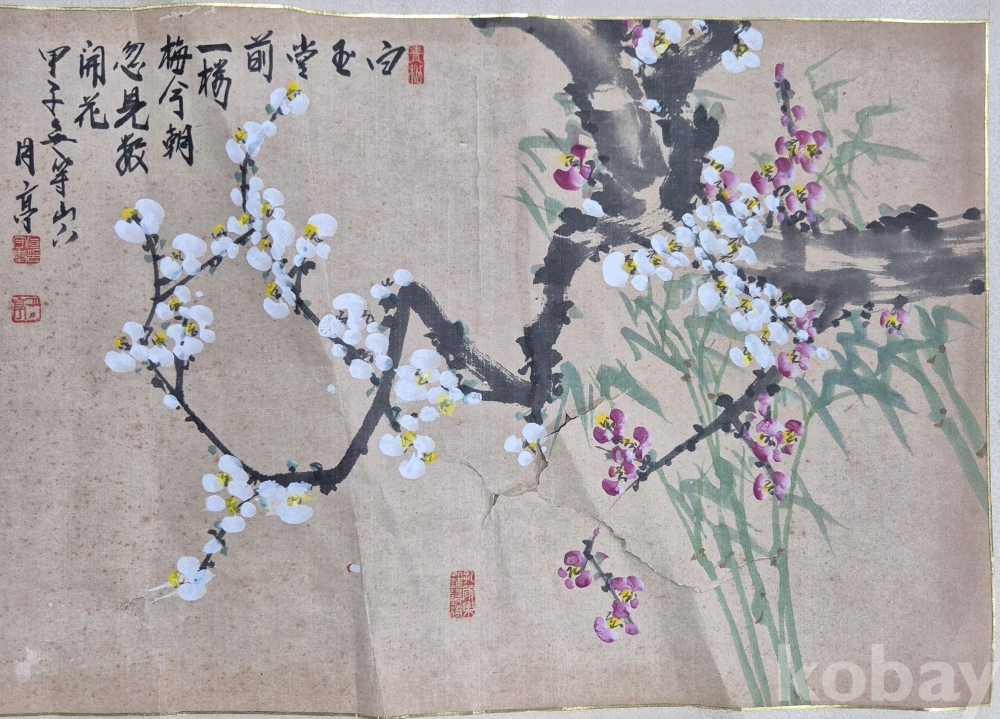 白
玉
堂
前
一樹
梅今朝
忽見數
開花
甲子 山人
月亭
kobay